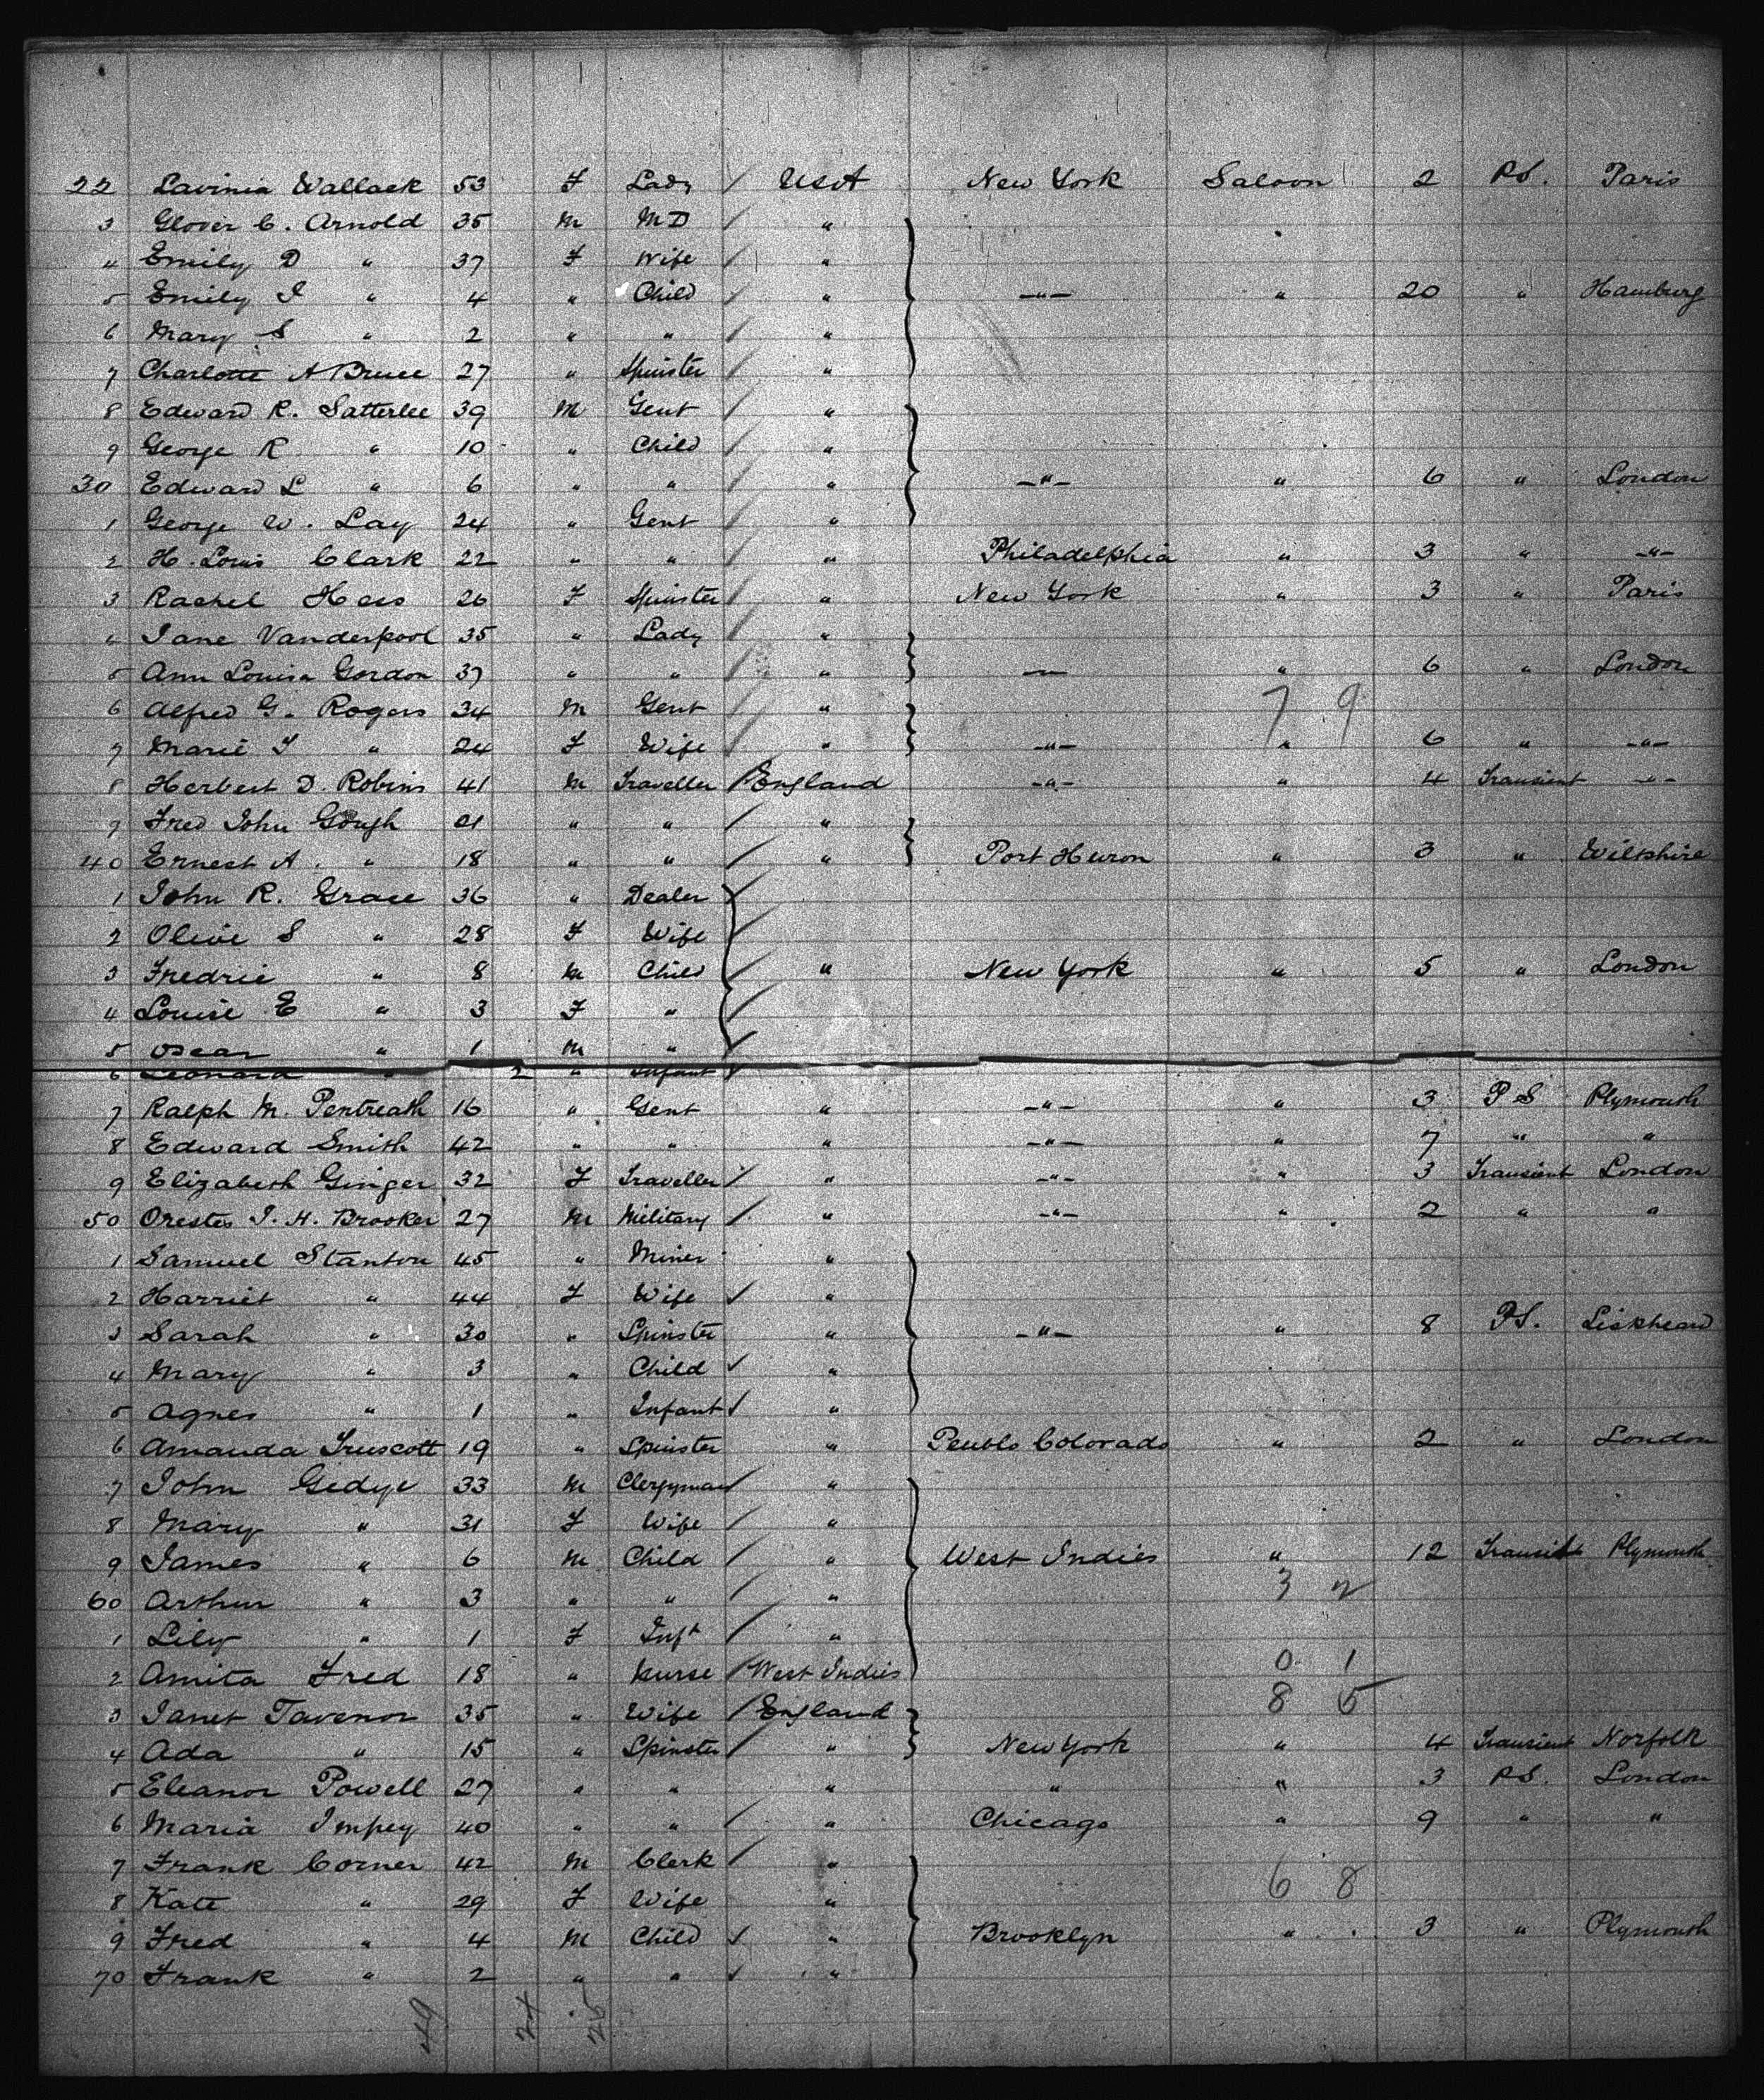 22 Lavinia Wallack 53 F Lady / USA New York Saloon 2 P.S. Paris
3 Glover C. Arnold 35 M M D / "
4 Emily D " 37 F Wife / "
5 Emily I " 4 " Child / " —"— " 20 " Hamburg
6 Mary S " 2 " " / "
7 Charlotte A Bruce 27 " Spinster / "
8 Edward R. Satterlee 39 M Gent / "
9 George R " 10 " Child / "
30 Edward L " 6 " " / " —"— " 6 " London
1 George W. Lay 24 " Gent / "
2 H. Louis Clark 22 " " / " Philadelphia " 3 " —"—
3 Rachel Hess 26 F Spinster / " New York " 3 " Paris
4 Jane Vanderpool 35 " Lady / "
5 Ann Louisa Gordon 37 " " / " — " 6 " London
6 Alfred G. Rogers 34 M Gent / " 7 9
7 Marie I " 24 F Wife / " —"— " 6 " —"—
8 Herbert D. Robins 41 M Traveller / England —"— " 4 Transient —"—
9 Fred John Gough 21 " " / "
40 Ernest A. " 18 " " / " Port Huron " 3 " Wiltshire
1 John R. Grace 36 " Dealer /
2 Olive S " 28 F Wife /
3 Fredric " 8 M Child / " New York " 5 " London
4 Louise E " 3 F " /
5 Oscar " 1 M " /
6 Leonard " 2 " Infant ✓
7 Ralph M. Pentreath 16 " Gent " —"— " 3 P S Plymouth
8 Edward Smith 42 " " " —"— " 7 " "
9 Elizabeth Ginger 32 F Traveller / " —"— " 3 Transient London
50 Orestes J. H. Brooker 27 M Military / " —"— " 2 " "
1 Samuel Stanton 45 " Miner "
2 Harriet " 44 F Wife ✓ "
3 Sarah " 30 " Spinster " —"— " 8 P.S. Liskheard
4 Mary " 3 " Child ✓ "
5 Agnes " 1 " Infant ✓ "
6 Amanda Truscott 19 " Spinster " Peublo Colorado " 2 " London
7 John Gedye 33 M Clergyman / "
8 Mary " 31 F Wife / "
9 James " 6 M Child / " West Indies " 12 Transit Plymouth
60 Arthur " 3 " " / " 3 2
1 Lily " 1 F Inft / "
2 Amita Fred 18 " Nurse / West Indies 0 1
3 Janet Tavenor 35 " Wife / England 8 5
4 Ada " 15 " Spinster / " New York " 4 Transient Norfolk
5 Eleanor Powell 27 " " " " " 3 P.S. London
6 Maria Impey 40 " " / " Chicago " 9 " "
7 Frank Corner 42 M Clerk / "
8 Kate " 29 F Wife " 6 8
9 Fred " 4 M Child ✓ " Brooklyn " 3 " Plymouth
70 Frank " 2 " " ✓ "
49 24 25